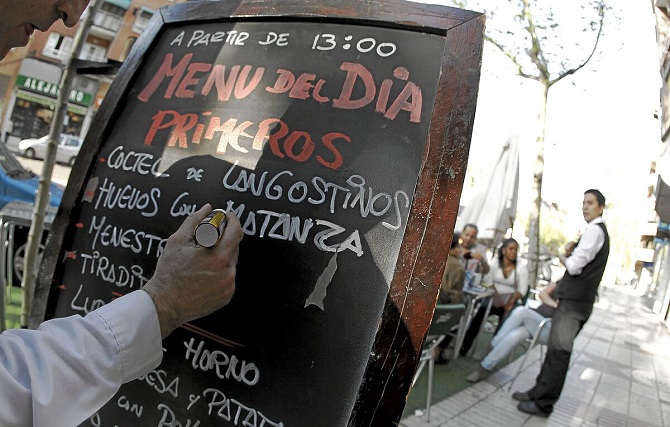 A PARTIR DE 13:00
MENU DEL DIA
PRIMEROS
COCTEL DE LANGOSTINOS
HUEVOS CON MATANZA
MENESTR
TIRADIT
LU
HORNO
ESA Y PATATA
CON
ALEJANDRO